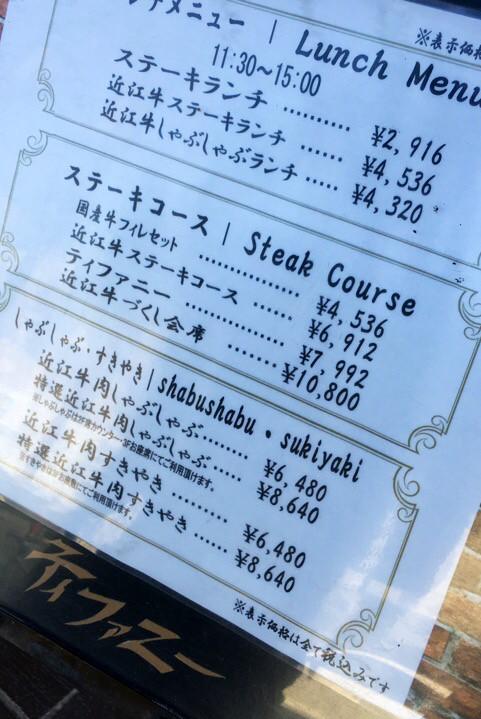 ランチメニュー | Lunch Menu
※表示価格
11:30〜15:00
ステーキランチ ………… ¥2,916
近江牛ステーキランチ …… ¥4,536
近江牛しゃぶしゃぶランチ …… ¥4,320
ステーキコース | Steak Course
国産牛フィレセット ………… ¥4,536
近江牛ステーキコース …… ¥6,912
ティファニー ………… ¥7,992
近江牛づくし会席 ……… ¥10,800
しゃぶしゃぶ・すきやき | shabushabu・sukiyaki
近江牛肉しゃぶしゃぶ ……… ¥6,480
特選近江牛肉しゃぶしゃぶ …… ¥8,640
近江牛肉すきやき ……… ¥6,480
特選近江牛肉すきやき …… ¥8,640
※表示価格は全て税込みです
ティファニー